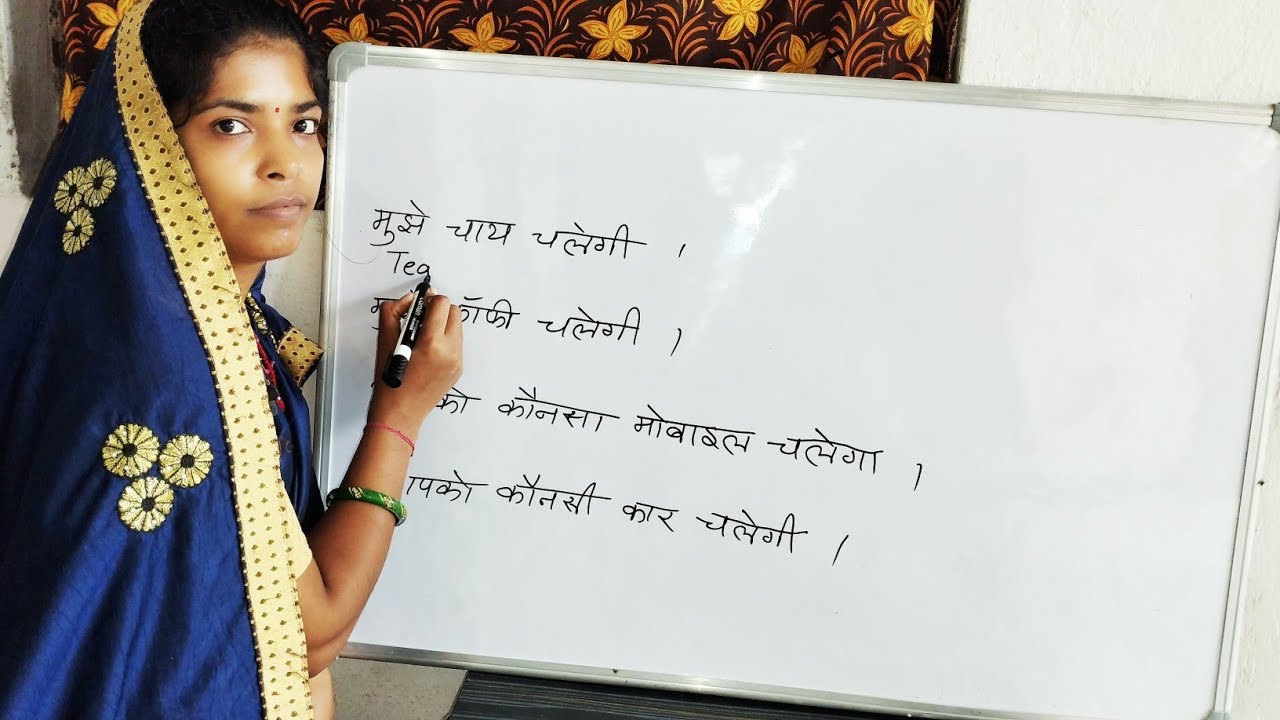 मुझे चाय चलेगी ।
Tea
कॉफी चलेगी ।
कौनसा मोबाइल चलेगा ।
कौनसी कार चलेगी ।